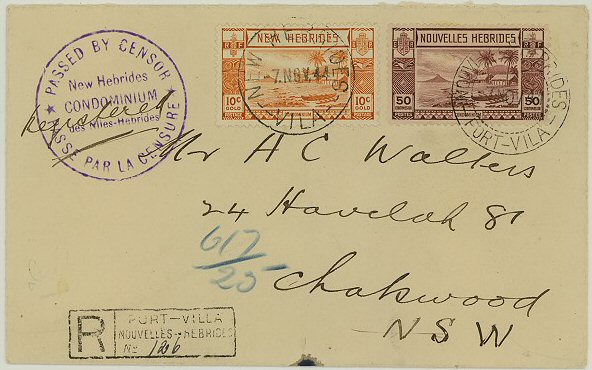 PASSED BY CENSOR
New Hebrides
CONDOMINIUM
des Nlles-Hebrides
PASSE PAR LA CENSURE
Registered
NEW HEBRIDES
RF
10c
GOLD
10c
GOLD
7 NOV 41
VILA
NOUVELLES HEBRIDES
RF
50
50
PORT-VILA
Mr A C Walters
24 Havelock St
617
25
Chatswood
NSW
R
PORT-VILLA
NOUVELLES-HEBRIDES
No 126